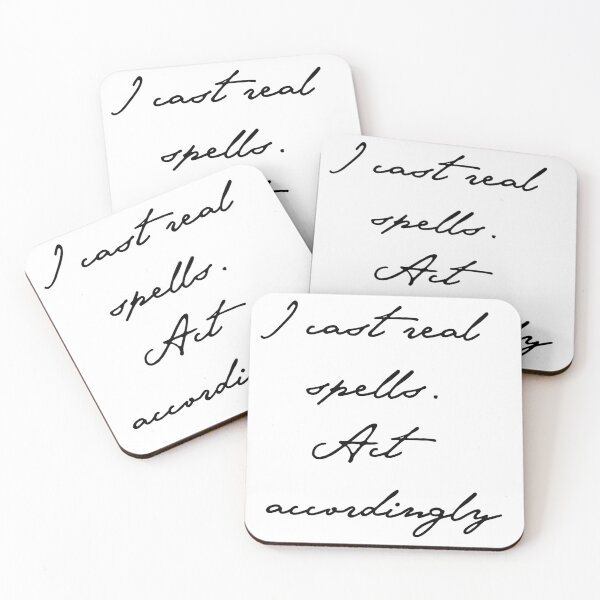 I cast real
spells.
I cast real
spells.
Act
I cast real
spells.
Act
accordi
I cast real
spells.
Act
accordingly